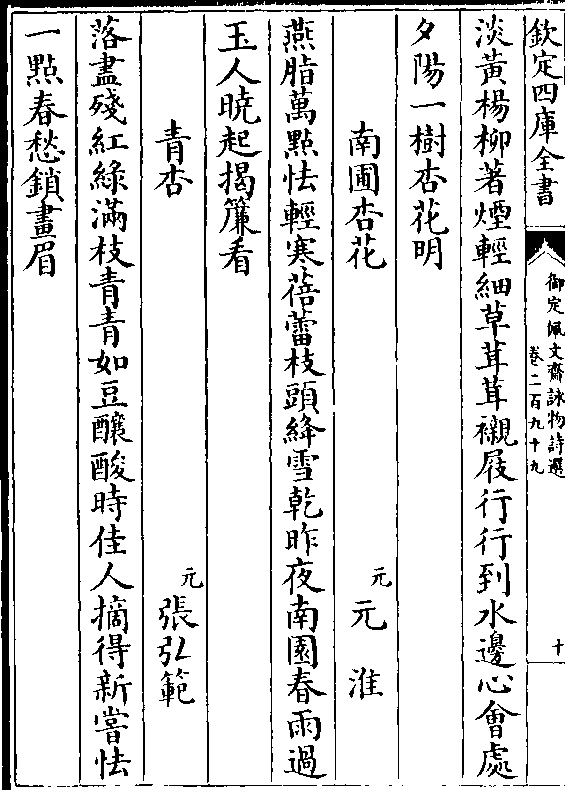 欽定四庫全書
御定佩文齋詠物詩選
卷二百九十九
十
淡黃楊柳著煙輕細草茸茸襯屐行行到水邊心會處
夕陽一樹杏花明
南圃杏花
元
元淮
燕脂萬點怯輕寒蓓蕾枝頭絳雪乾昨夜南園春雨過
玉人曉起揭簾看
青杏
元
張弘範
落盡殘紅綠滿枝青青如豆釀酸時佳人摘得新嘗怯
一點春愁鎖畫眉